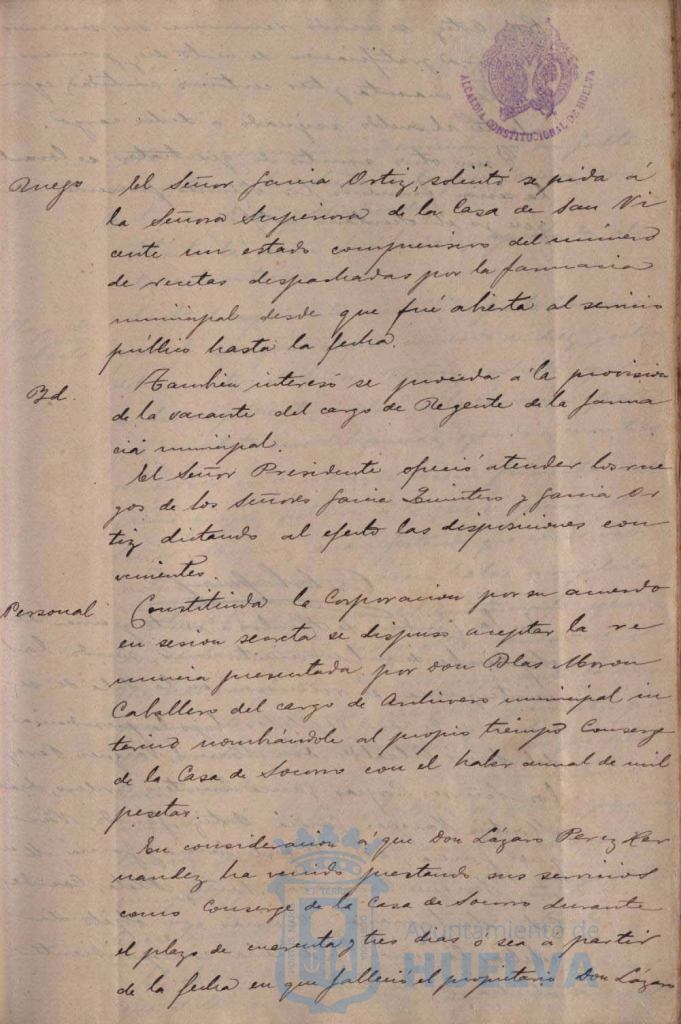 ALCALDIA CONSTITUCIONAL DE HUELVA
Ruego El Señor Garcia Ortiz, solicitó se pida á
la Señora Superiora de la Casa de San Vi
cente un estado comprensivo del número
de recetas despachadas por la farmacia
municipal desde que fué abierta al servicio
público hasta la fecha.
Yd. Tambien interesó se proceda á la provision
de la vacante del cargo de Regente de la farma
cia municipal.
El Señor Presidente ofreció atender los rue
gos de los Señores Garcia Quintero y Garcia Or
tiz dictando al efecto las disposiciones con
venientes.
Personal Constituida la Corporacion por su acuerdo
en sesion secreta se dispuso aceptar la re
nuncia presentada por don Blas Moron
Caballero del cargo de Archivero municipal in
terino nombrándole al propio tiempo Conserge
de la Casa de Socorro con el haber anual de mil
pesetas.
En consideracion á que Don Lázaro Perez Her
nandez ha venido prestando sus servicios
como Conserge de la Casa de Socorro durante
el plazo de cuarenta y tres dias o sea a partir
de la fecha en que falleció el propietario Don Lázaro
Ayuntamiento de
HUELVA